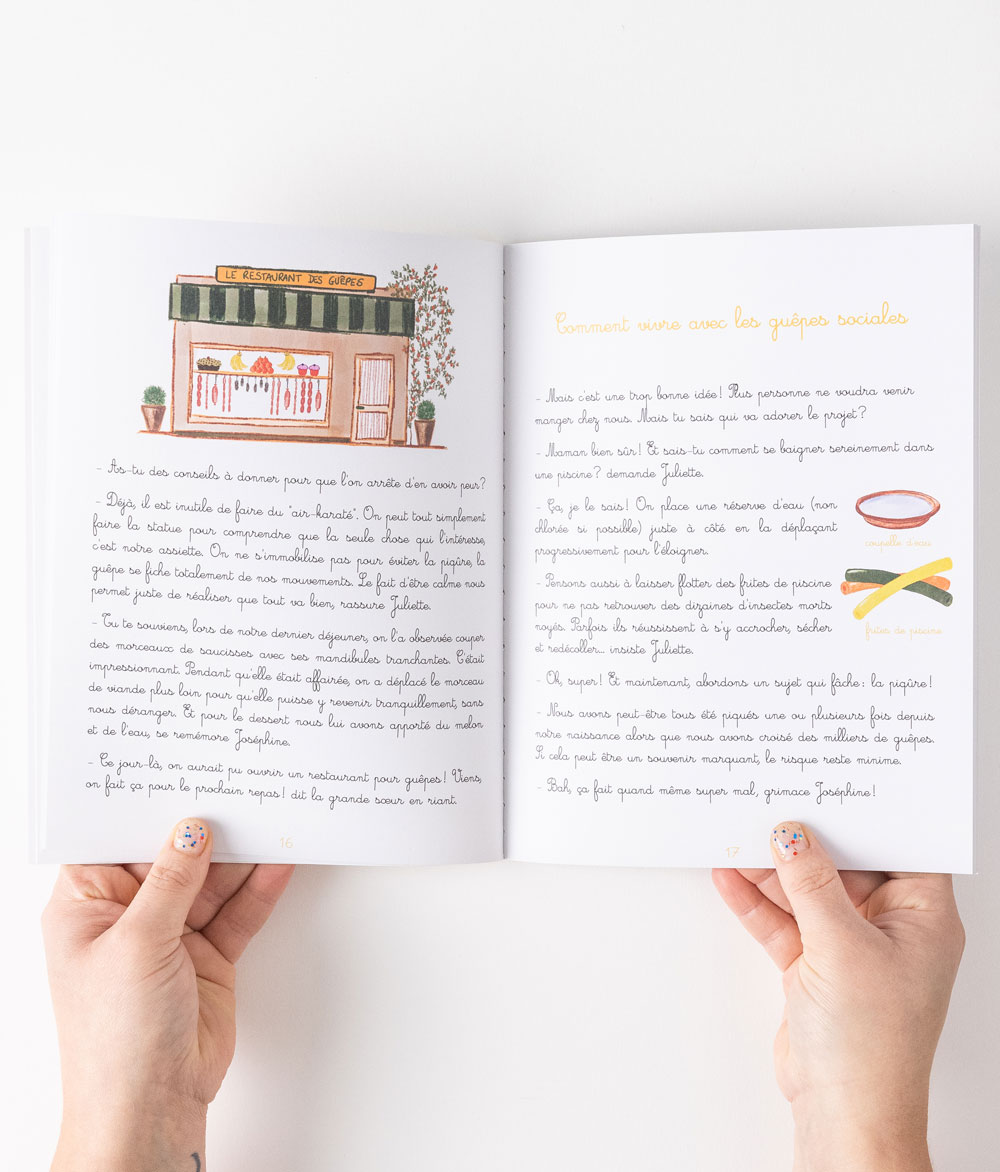 LE RESTAURANT DES GUÊPES
- As-tu des conseils à donner pour que l'on arrête d'en avoir peur?
- Déjà, il est inutile de faire du "air-karaté". On peut tout simplement
faire la statue pour comprendre que la seule chose qui l'intéresse,
c'est notre assiette. On ne s'immobilise pas pour éviter la piqûre, la
guêpe se fiche totalement de nos mouvements. Le fait d'être calme nous
permet juste de réaliser que tout va bien, rassure Juliette.
- Tu te souviens, lors de notre dernier déjeuner, on l'a observée couper
des morceaux de saucisses avec ses mandibules tranchantes. C'était
impressionnant. Pendant qu'elle était affairée, on a déplacé le morceau
de viande plus loin pour qu'elle puisse y revenir tranquillement, sans
nous déranger. Et pour le dessert nous lui avons apporté du melon
et de l'eau, se remémore Joséphine.
- Ce jour-là, on aurait pu ouvrir un restaurant pour guêpes! Viens,
on fait ça pour le prochain repas! dit la grande sœur en riant.
16
Comment vivre avec les guêpes sociales
- Mais c'est une trop bonne idée! Plus personne ne voudra venir
manger chez nous. Mais tu sais qui va adorer le projet?
- Maman bien sûr! Et sais-tu comment se baigner sereinement dans
une piscine? demande Juliette.
- Ça, je le sais! On place une réserve d'eau (non
chlorée si possible) juste à côté en la déplaçant
progressivement pour l'éloigner.
coupelle d'eau
- Pensons aussi à laisser flotter des frites de piscine
pour ne pas retrouver des dizaines d'insectes morts
noyés. Parfois ils réussissent à s'y accrocher, sécher
et redécoller... insiste Juliette.
frites de piscine
- Oh, super! Et maintenant, abordons un sujet qui fâche: la piqûre!
- Nous avons peut-être tous été piqués une ou plusieurs fois depuis
notre naissance alors que nous avons croisé des milliers de guêpes.
Si cela peut être un souvenir marquant, le risque reste minime.
- Bah, ça fait quand même super mal, grimace Joséphine!
17